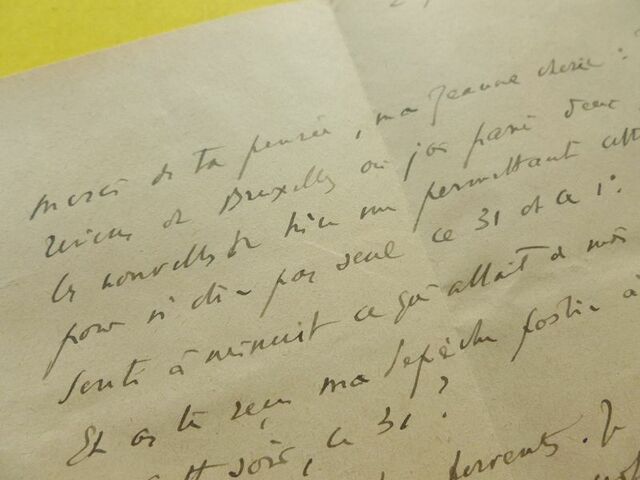 merci de ta pensée, ma Jeanne chérie : J
reviens de Bruxelles où j'ai passé deux
les nouvelles de hier me permettant
pour n'être pas seul ce 31 et ce 1°.
Senti à minuit ce qui allait de moi
Et as tu reçu ma dépêche postée à
soir, ce 31 ?
fervents. J